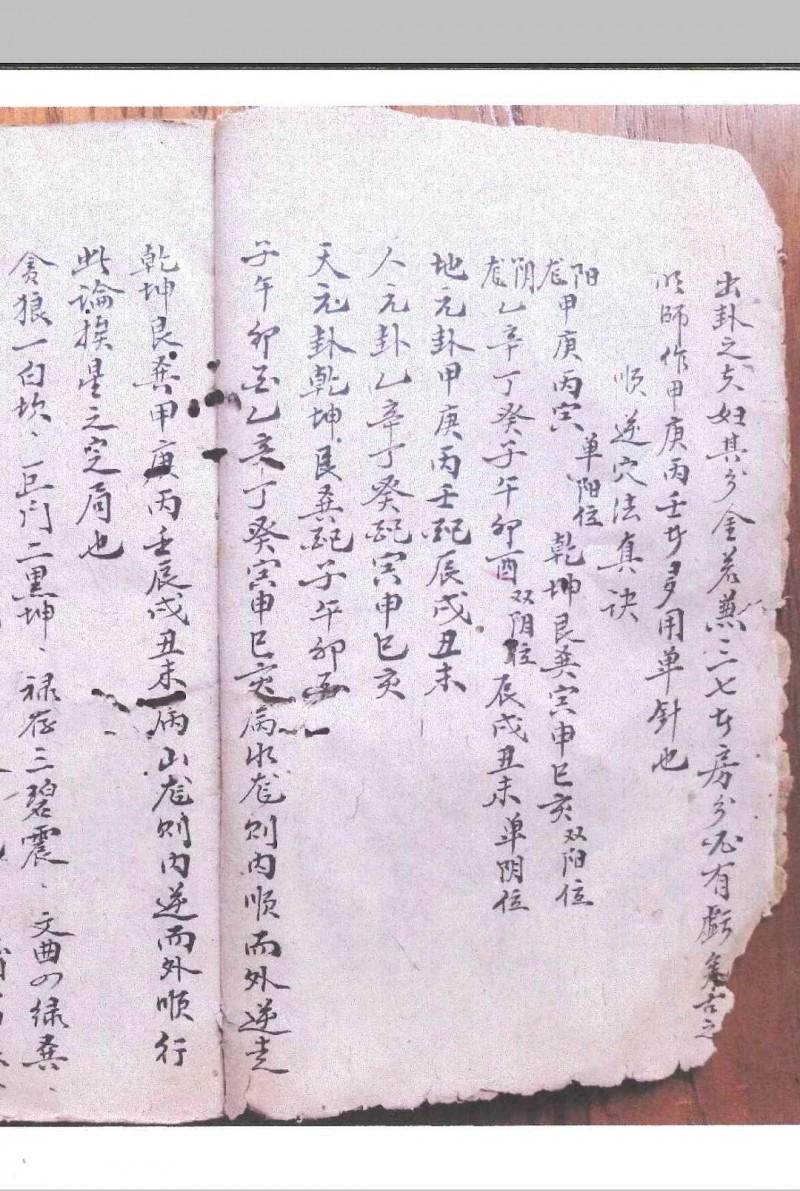 出卦之夫妇其分金若兼三七分房分必有虧矣古之
明师作甲庚丙壬分多用单針也
順逆穴法真诀
阳龙甲庚丙寅单阳位乾坤艮巽寅申巳亥双阳位
阴龙乙辛丁癸子午卯酉双阴位辰戌丑未单阴位
地元卦甲庚丙壬配辰戌丑未
人元卦乙辛丁癸配寅申巳亥
天元卦乾坤艮巽配子午卯酉
子午卯酉乙辛丁癸寅申巳亥為水龙则内順而外逆走
乾坤艮巽甲庚丙壬辰戌丑未為山龙则内逆而外順行
此論挨星之定局也
贪狼一白坎、巨门二黑坤、禄存三碧震、文曲四绿巽、